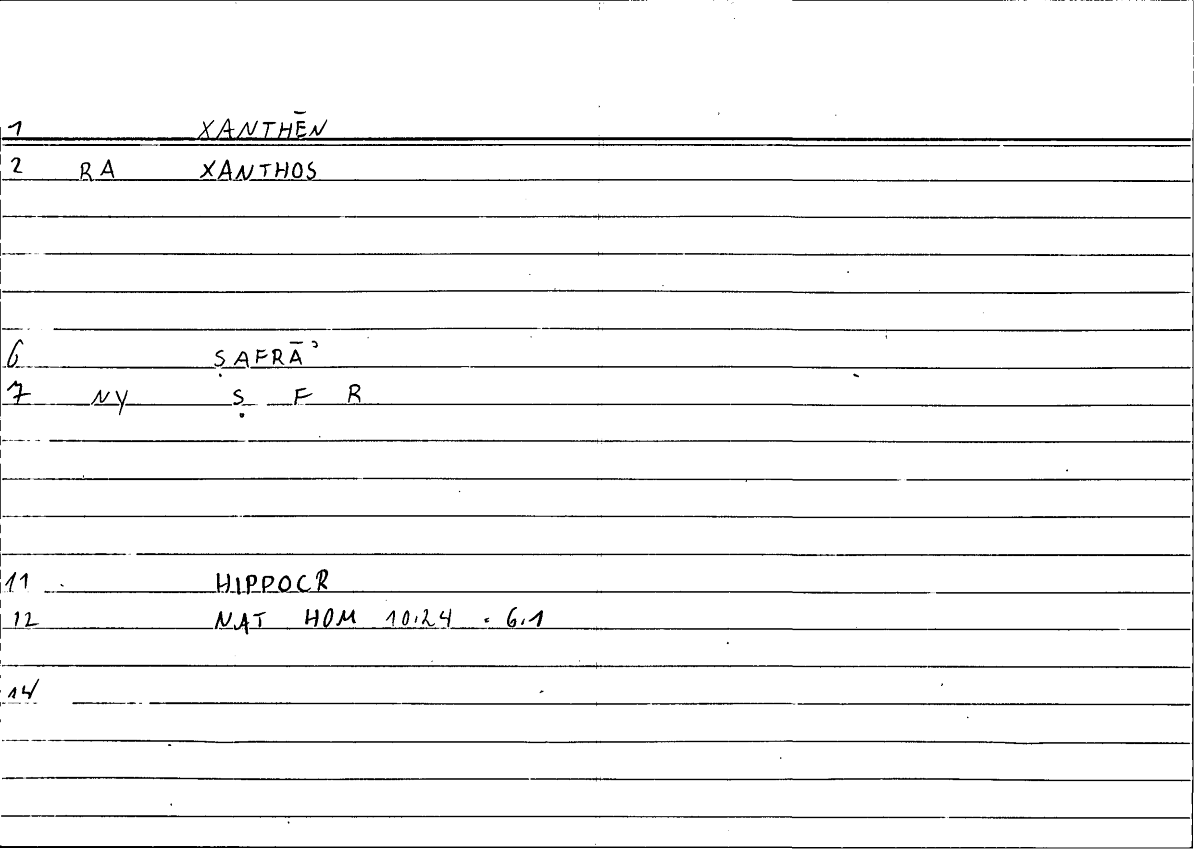 1 XANTHĒN
2 RA XANTHOS
6 ṢAFRĀʾ
7 NY Ṣ F R
11 HIPPOCR
12 NAT HOM 10.24 . 6.1
14